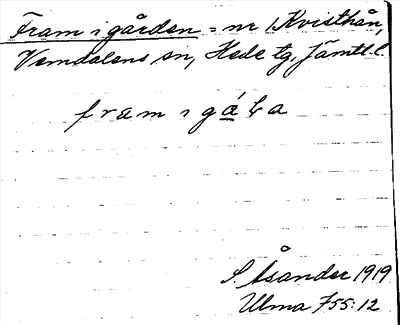 Fram i gården = nr 1 Kvisthån,
Vemdalens sn, Hede tg, Jämtl. l.
fram ı gá̱ƚa
S. Åsander 1919
Ulma 755:12